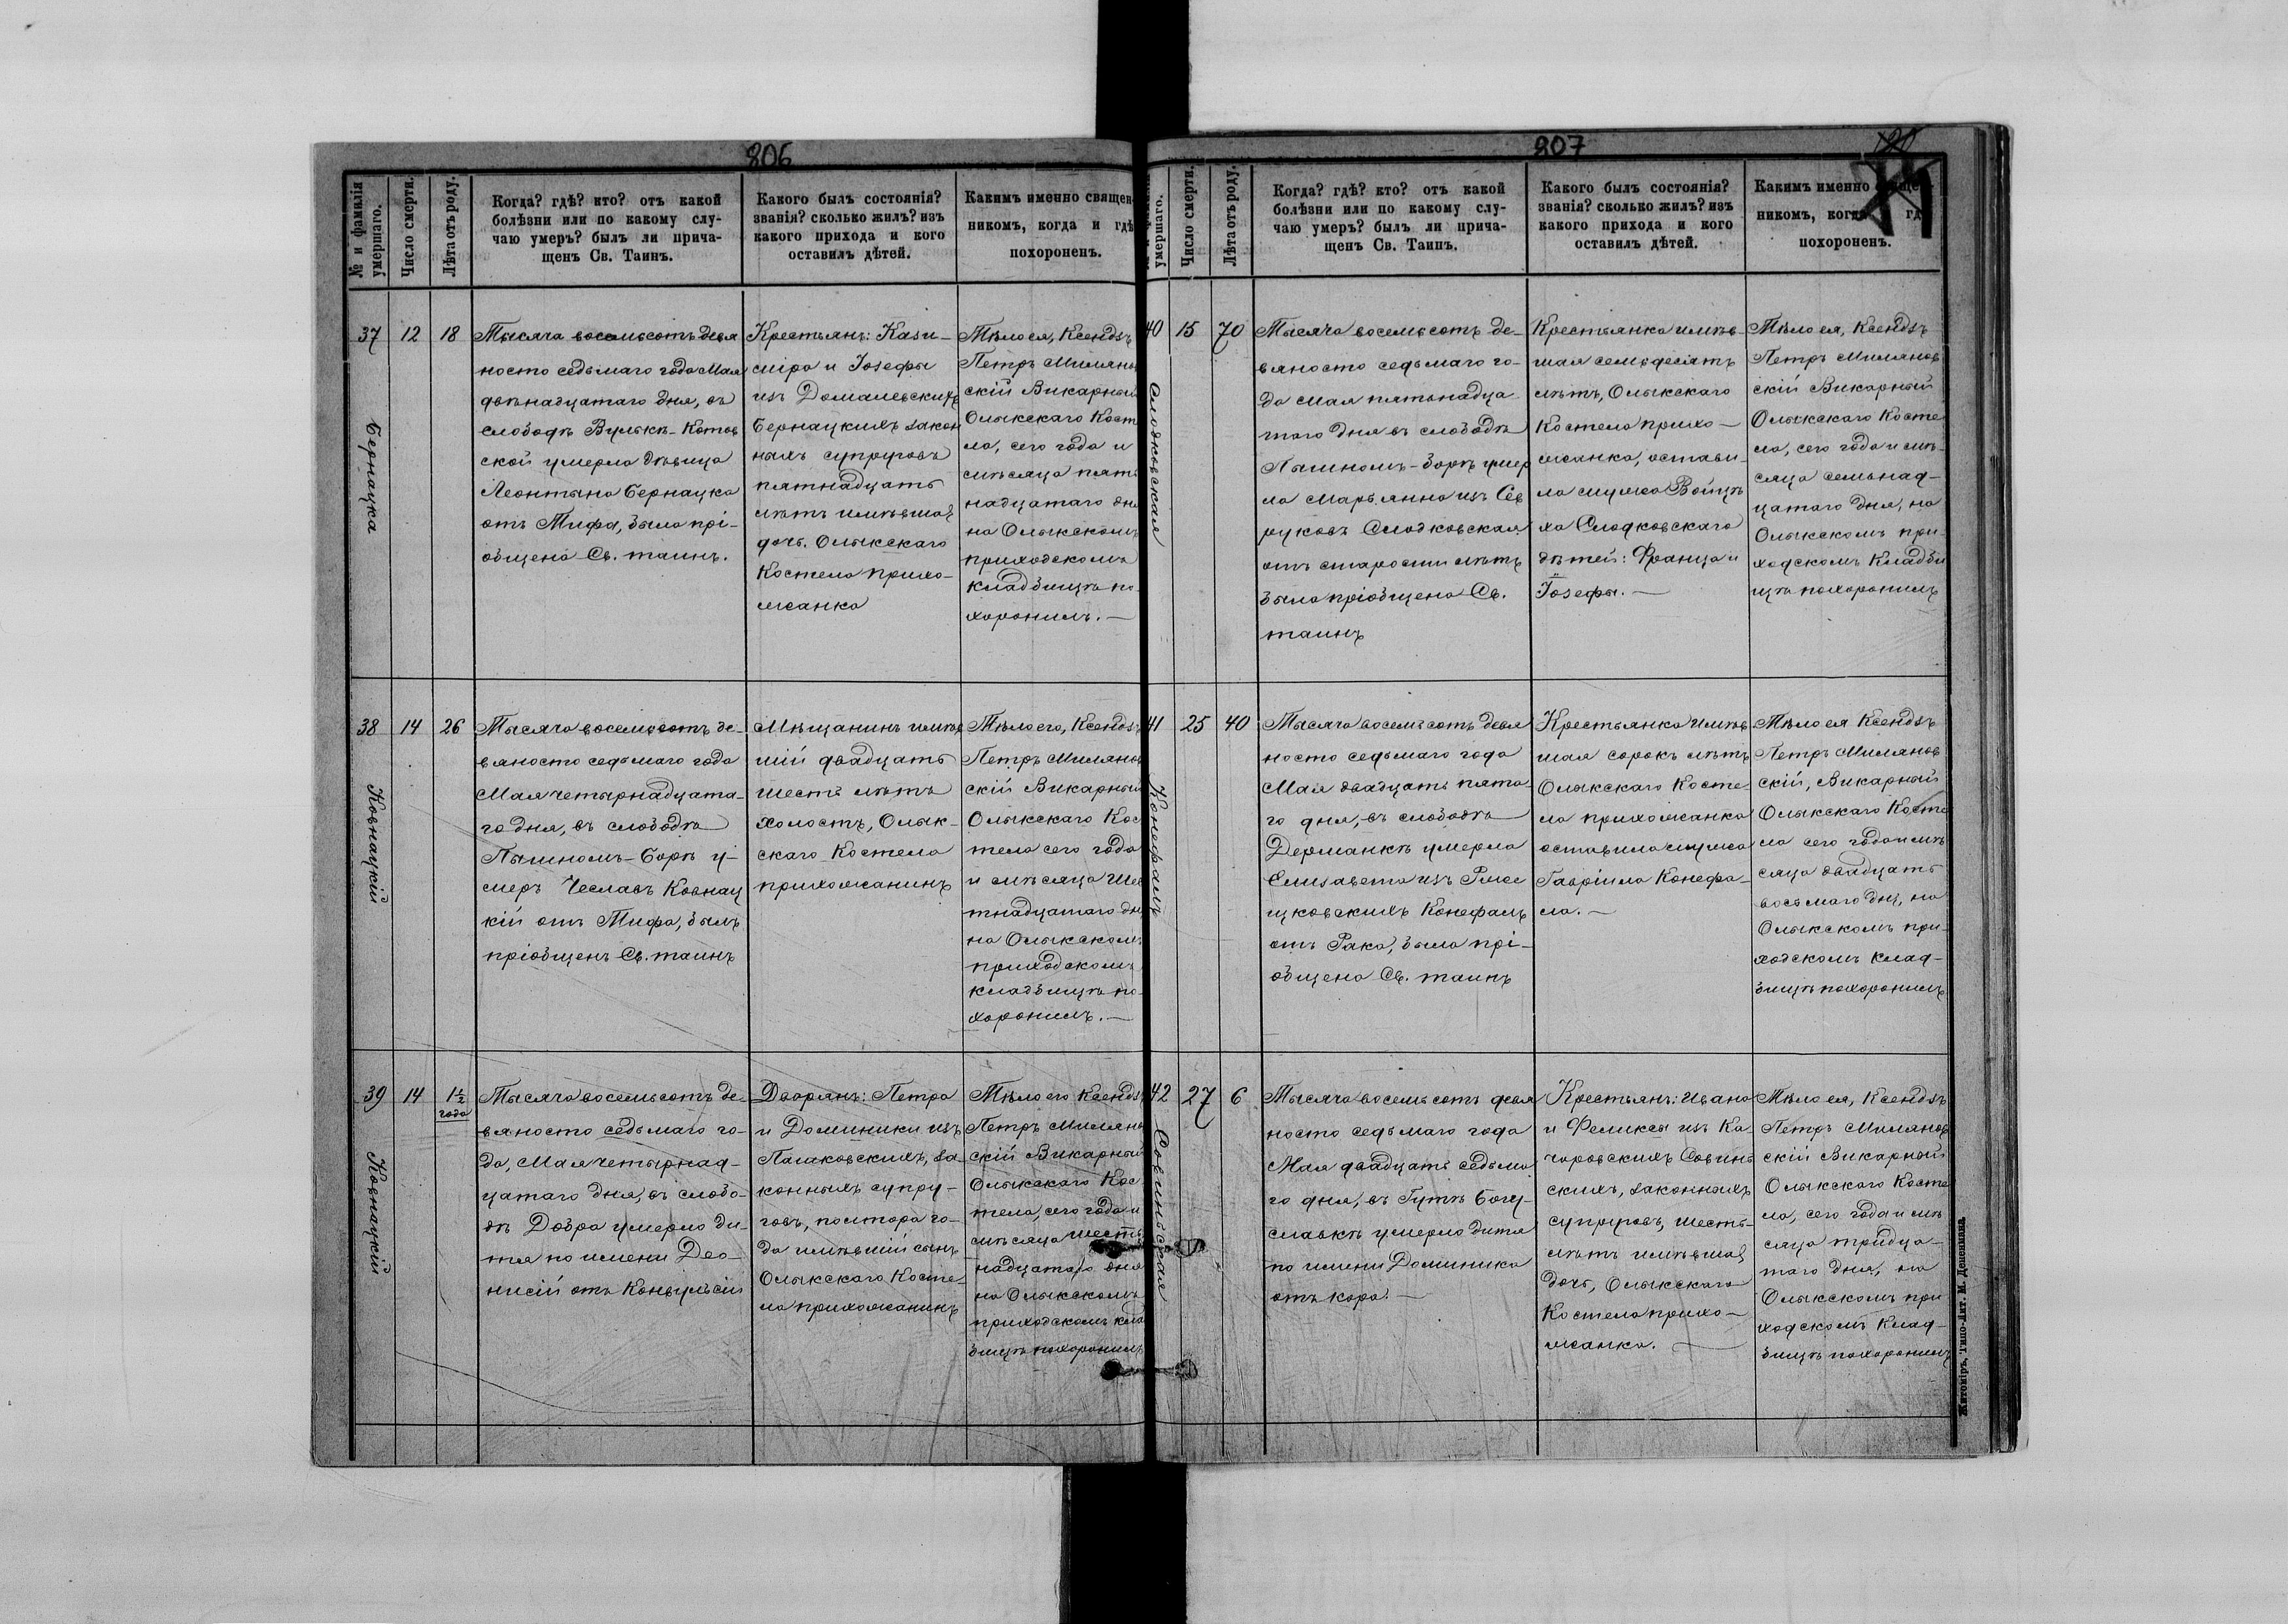 806
№ и фамилія умершаго.
Число смерти.
Лѣта отъ роду.
Когда? гдѣ? кто? отъ какой
болѣзни или по какому слу-
чаю умеръ? былъ ли прича-
щенъ Св. Таинъ.
Какого былъ состоянія?
званія? сколько жилъ? изъ
какого прихода и кого
оставилъ дѣтей.
Какимъ именно священ-
никомъ, когда и гдѣ
похороненъ.
37
Бернацка
12
18
Тысяча восемьсотъ девя
носто седьмаго года Мая
двѣнадцатаго дня, въ
слободѣ Вулькѣ-Котов
ской умерла дѣвица
Леонтына Бернацка
отъ Тифа, была прі-
общена Св. таинъ.
Крестьянъ: Кази-
міра и Іозефы
изъ Домалевскихъ
Бернацкихъ закон
ныхъ супруговъ
пятнадцать
лѣтъ имѣвшая
дочь. Олыкскаго
Костела прихо-
жанка
Тѣло ея, Ксендзъ
Петръ Милянов
скій Викарный
Олыкскаго Косте
ла, сего года и
мѣсяца пят
надцатаго дня
на Олыкскомъ
приходскомъ
кладбищѣ по-
хоронилъ. —
38
Ковнацкій
14
26
Тысяча восемьсотъ де-
вяносто седьмаго года
Мая четырнадцата-
го дня, въ слободѣ
Пышномъ-Борѣ у-
меръ Чеславъ Ковнац
кій отъ Тифа, былъ
пріобщенъ Св. таинъ
Мѣщанинъ имѣв
шій двадцать
шесть лѣтъ
холостъ, Олык-
скаго Костела
прихожанинъ
Тѣло его, Ксендзъ
Петръ Милянов
скій Викарный
Олыкскаго Кос
тела сего года
и мѣсяца шес
тнадцатаго дня
на Олыкскомъ
приходскомъ
кладбищѣ по-
хоронилъ. —
39
Ковнацкій
14
1½
года
Тысяча восемьсотъ де-
вяносто седьмаго го-
да, Мая четырнад-
цатаго дня, въ слобо-
дѣ Добра умерло ди-
тя по имени Део-
нисій отъ Конвульсіи
Дворянъ: Петра
и Доминики изъ
Пашковскихъ, за-
конныхъ супру-
говъ, полтора го-
да имѣвшій сынъ
Олыкскаго Косте-
ла прихожанинъ
Тѣло его Ксендзъ
Петръ Милянов
скій Викарный
Олыкскаго Кос
тела, сего года и
мѣсяца шесть
надцатаго дня
на Олыкскомъ
приходскомъ клад
бищѣ похоронилъ
807
умершаго.
Число смерти.
Лѣта отъ роду.
Когда? гдѣ? кто? отъ какой
болѣзни или по какому слу-
чаю умеръ? былъ ли прича-
щенъ Св. Таинъ.
Какого былъ состоянія?
званія? сколько жилъ? изъ
какого прихода и кого
оставилъ дѣтей.
Какимъ именно
никомъ, когда
похороненъ.
40
Слодковская
15
70
Тысяча восемьсотъ де-
вяносто седьмаго го-
да Мая пятьнадца
таго дня въ слободѣ
Пышномъ-Борѣ умер
ла Марьянна изъ Сев
руковъ Слодковская
отъ старости лѣтъ
была пріобщена Св.
таинъ
Крестьянка имѣв-
шая семьдесятъ
лѣтъ, Олыкскаго
Костела прихо-
жанка, остави-
ла мужа Войцѣ
ха Слодковскаго
дѣтей: Франца и
Іозефы. —
Тѣло ея, Ксендзъ
Петръ Милянов
скій Викарный
Олыкскаго Косте
ла, сего года и мѣ-
сяца семьнад-
цатаго дня, на
Олыкскомъ при-
ходскомъ кладби
щѣ похоронилъ
41
Конефалъ
25
40
Тысяча восемьсотъ девя
носто седьмаго года
Мая двадцать пята-
го дня, въ слободѣ
Дерманкѣ умерла
Елизавета изъ
Конефалъ
отъ Рака, была прі-
общена Св. таинъ
Крестьянка имѣв
шая сорокъ лѣтъ
Олыкскаго Косте-
ла прихожанка
оставила мужа
Гавріила Конефа-
ла. —
Тѣло ея Ксендзъ
Петръ Милянов
скій, Викарный
Олыкскаго Косте
ла сего года и мѣ
сяца двадцать
восьмаго дня, на
Олыкскомъ при-
ходскомъ клад-
бищѣ похоронилъ
42
Совинская
27
6
Тысяча восемьсотъ девя
носто седьмаго года
Мая двадцать седьма
го дня, въ Гутѣ Богу-
славкѣ умерло дитя
по имени Доминика
отъ кора. —
Крестьянъ: Ивана
и Феликсы изъ Ка-
чоровскихъ Совинь
скихъ, законныхъ
супруговъ, шесть-
лѣтъ имѣвшая
дочь, Олыкскаго
Костела прихо-
жанка. —
Тѣло ея, Ксендзъ
Петръ Милянов
скій Викарный
Олыкскаго Косте
ла, сего года и мѣ
сяца тридца-
таго дня, на
Олыкскомъ при
ходскомъ клад-
бищѣ похоронилъ
Житоміръ, Типо-Лит. М. Дененмана